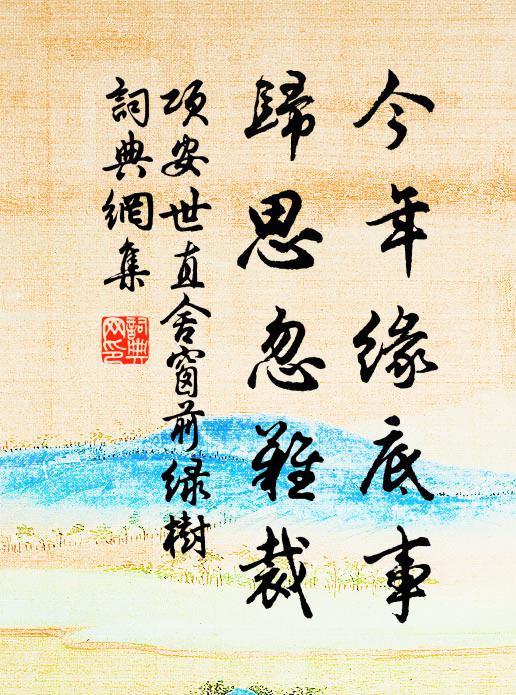 今年緣底事
歸思忽難裁
項安世直舍窗前綠樹
詞典網集
詞典网印